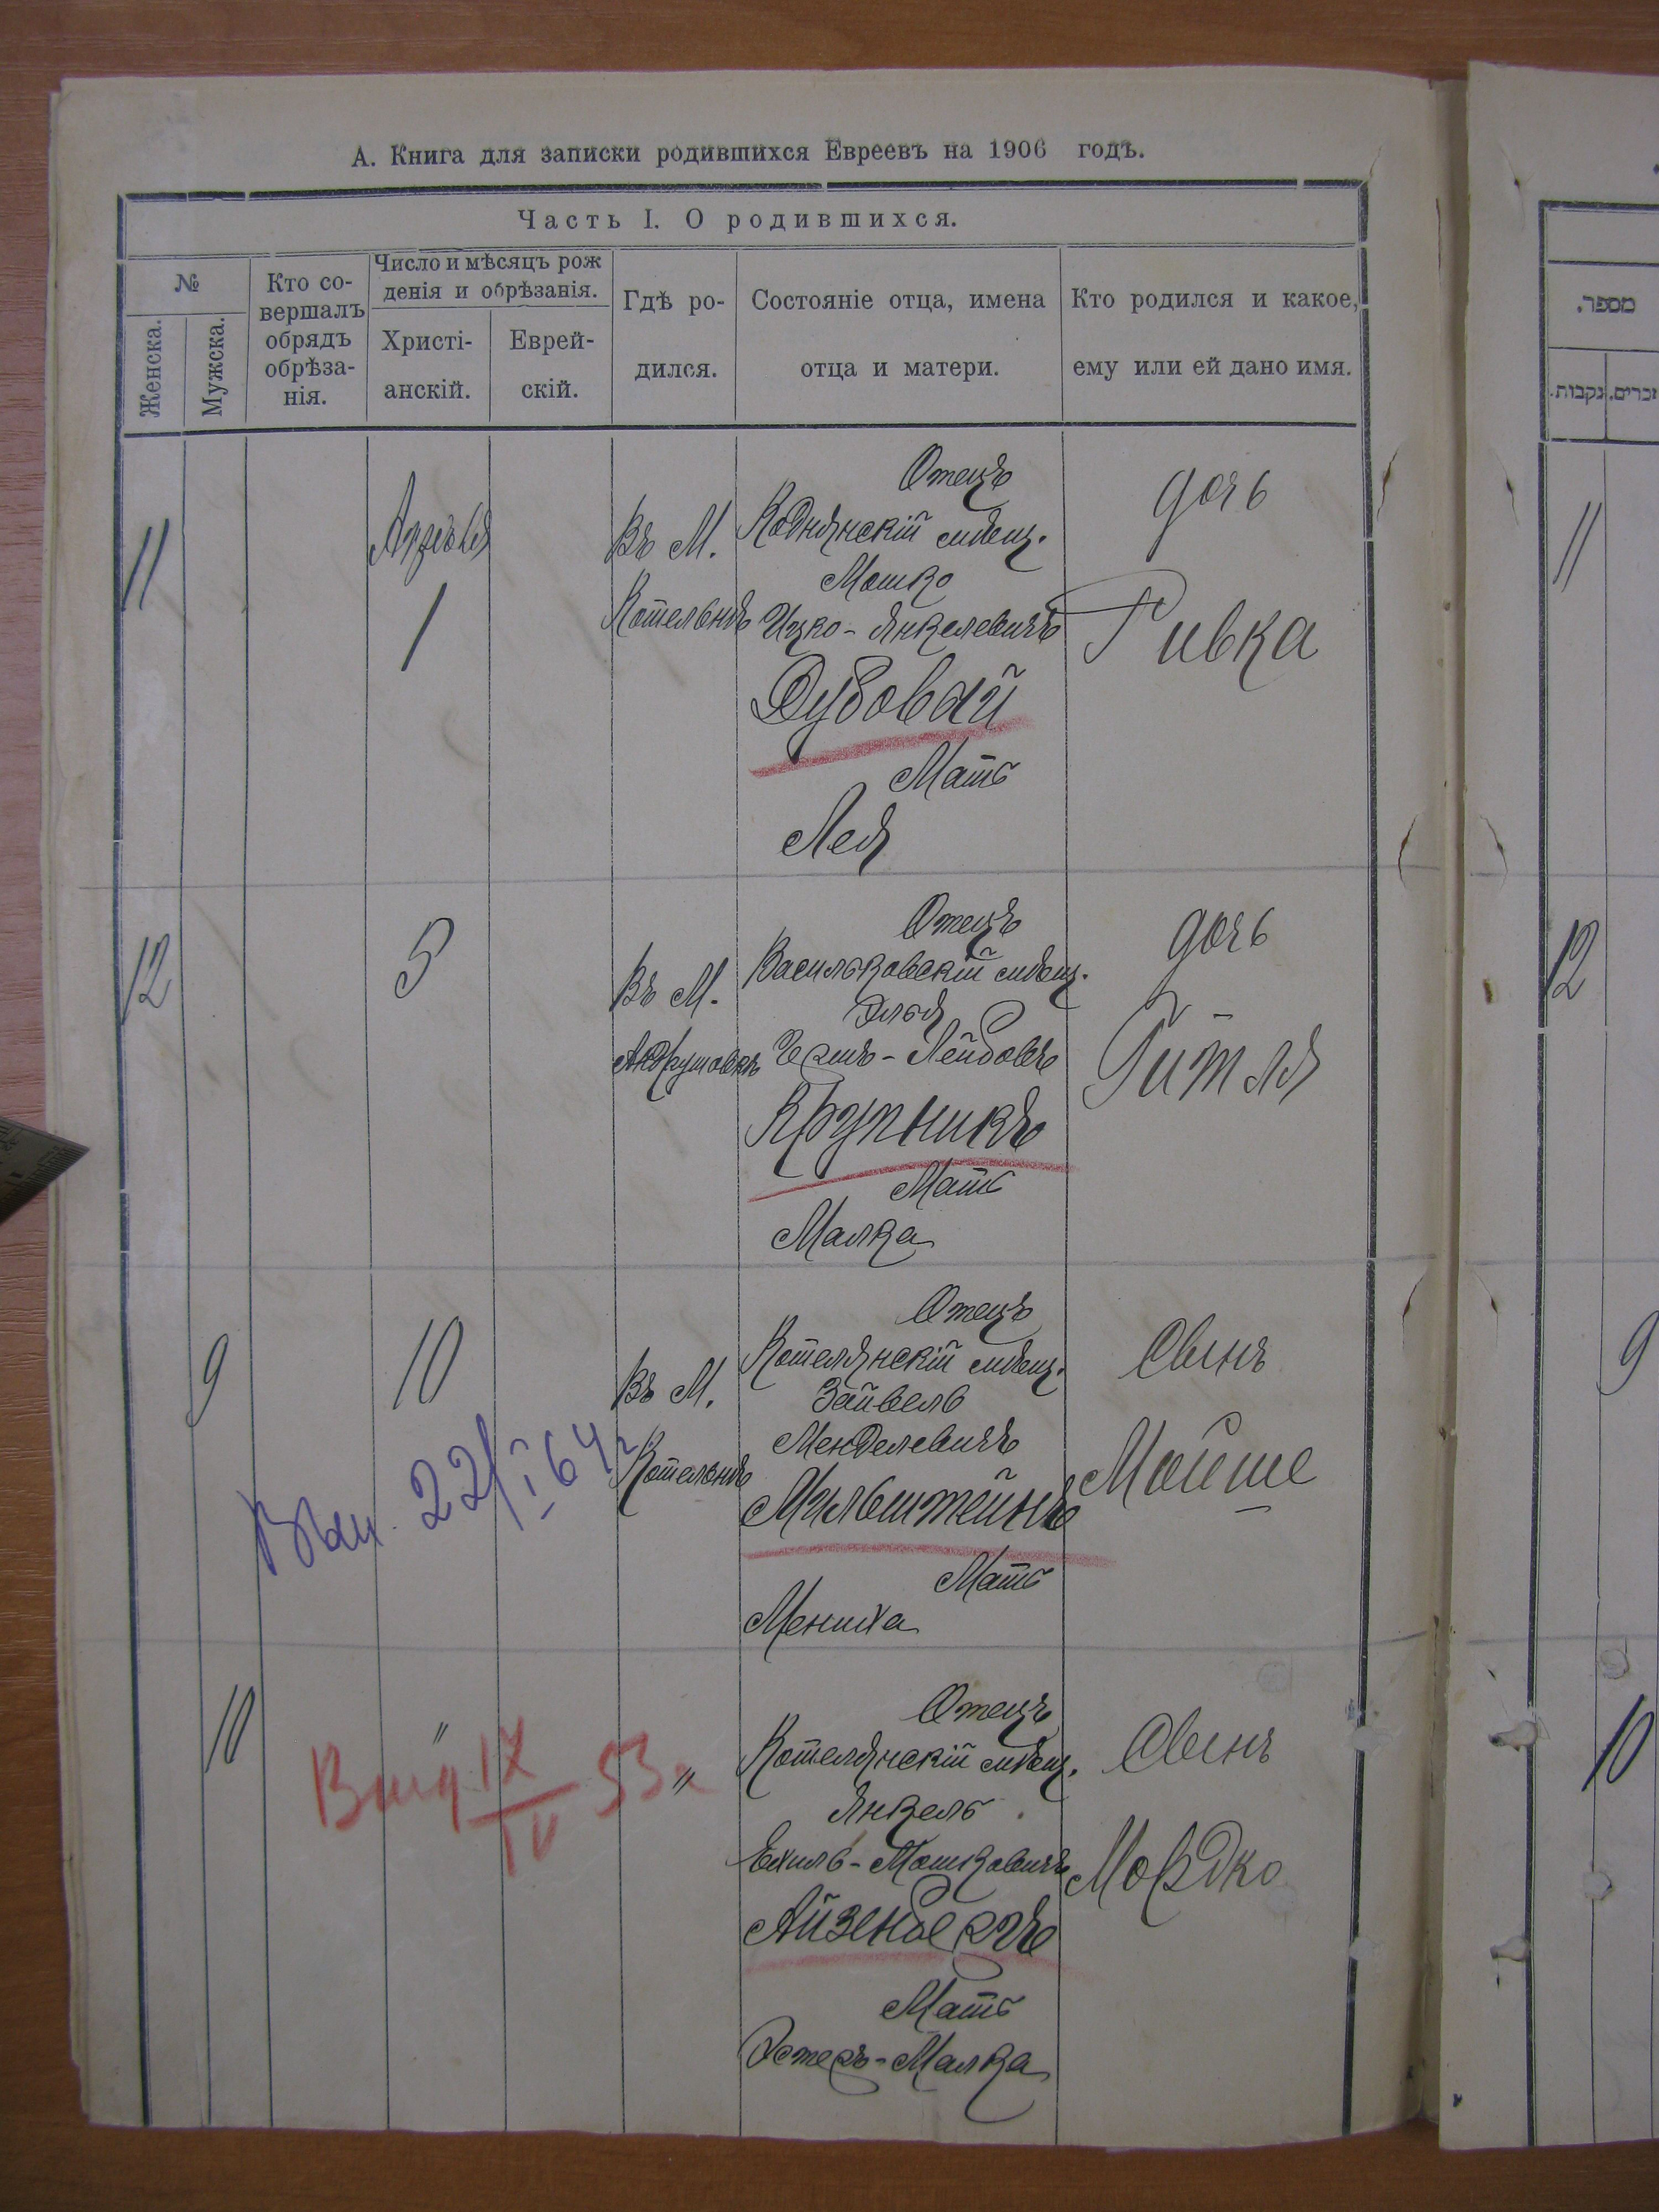 А. Книга для записки родившихся Евреевъ на 1906 годъ.
Часть I. О родившихся.
№
Женска.
Мужска.
Кто со-
вершалъ
обрядъ
обрѣза-
нія.
Число и мѣсяцъ рож
денія и обрѣзанія.
Христі-
анскій.
Еврей-
скій.
Гдѣ ро-
дился.
Состояніе отца, имена
отца и матери.
Кто родился и какое,
ему или ей дано имя.
11
Апрѣля
1
Въ М.
Котельнѣ
Отецъ
Коднянскій мѣщ.
Мошко
Ицко-Янкелевичъ
Дубовый
Мать
Лея
дочь
Ривка
12
5
Въ М.
Андрушовкѣ
Отецъ
Васильковскій мѣщ.
Элья
Гершъ-Лейбовъ
Крупникъ
Мать
Малка
дочь
Гитля
9
10
Въ М.
Котельнѣ
Отецъ
Котелянскій мѣщ.
Зайвель
Менделевичъ
Мильштейнъ
Мать
Мениха
Сынъ
Мойше
22/I 64 г
10
"
"
Отецъ
Котелянскій мѣщ.
Янкель
Ехиль-Мошковичъ
Айзенбергъ
Мать
Эстеръ-Малка
Сынъ
Мордко
Выд. IX
IV
53 г
מספר.
זכרים.
נקבות.
11
12
9
10